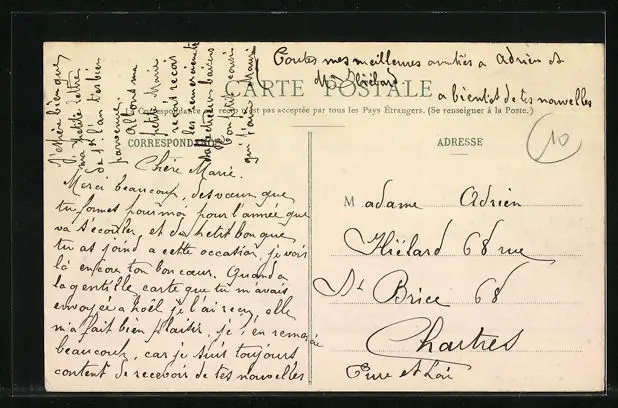 Toutes mes meilleures amitiés a Adrien et
Mr Hiélard
a bientot de tes nouvelles
CARTE POSTALE
Correspondance pas acceptée par tous les Pays Étrangers. (Se renseigner à la Poste.)
CORRESPONDANCE
ADRESSE
10
Chère Marie.
Merci beaucoup, des voeux que
tu formes pour moi pour l'année qui
va s'écouler, et du petit bon que
tu as joind a cette occasion, je vois
là encore ton bon cœur. Quand a
la gentille carte que tu m'avais
envoyée a noël je l'ai reçu, elle
m'a fait bien plaisir, je t'en remercie
beaucoup, car je suis toujours
content de recevoir de tes nouvelles
J'espère bien que
ma petite lettre
de 1er l'an t'es bien
parvenue.
Allons ma
petite Marie
reçoit
les
baisers
cousin
qui t'aime
Madame Adrien
Hiélard 68 rue
St Brice 68
Chartres
Eure et Loir